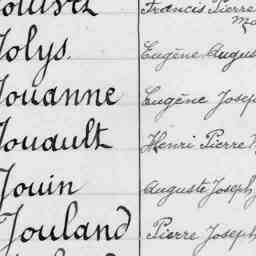 Francis Pierre
Jolys. Eugène Augus
Jouanne Eugène Joseph
Jouault Henri Pierre
Jouin Auguste Joseph
Jouland Pierre Joseph